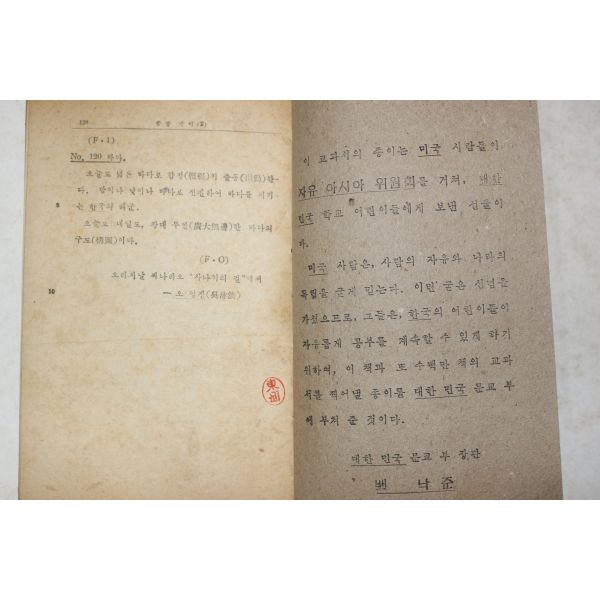 120 중등 국어 (2)
(F・I)
No. 120 바다.
오늘도 넓은 바다로 함정(艦艇)이 출동(出動)한
다. 밤이나 낮이나 바다를 지키
는 한국의 해군.
오늘도 내일도, 광대 무변(廣大無邊)한 바다의
구도(構圖)이다.
(F・O)
오리지날 씨나리오 "사나이의 길"에서
— 오 영진(吳泳鎭)
5
10
東
이 교과서의 종이는 미국 사람들이
자유 아시아 위원회를 거쳐, 대한
민국 학교 어린이들에게 보낸 선물이
다.
미국 사람은, 사람의 자유와 나라의
독립을 굳게 믿는다. 이런 굳은 신념을
가졌으므로, 그들은, 한국의 어린이들이
자유롭게 공부를 계속할 수 있게 하기
위하여, 이 책과 또 수백만 책의 교과
서를 찍어낼 종이를 대한 민국 문교 부
에 부쳐 준 것이다.
대한 민국 문교 부 장관
백 낙 준